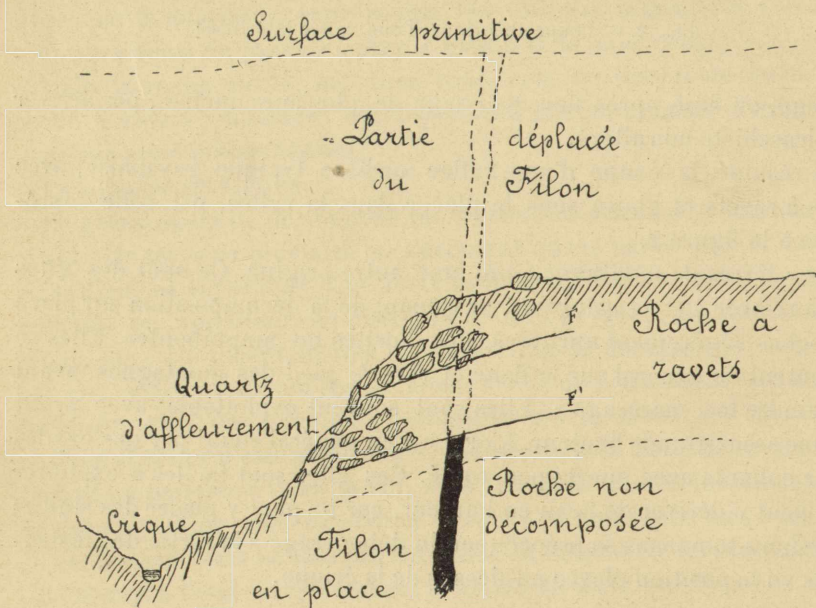 Surface primitive
Partie déplacée
du Filon
F
Roche à
ravets
Quartz
d'affleurement
F'
Crique
Roche non
décomposée
Filon
en place